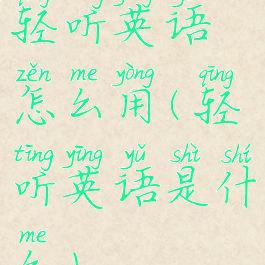 轻听英语
zěn me yòng qīng
怎么用(轻
tīng yīng yǔ shì shí
听英语是什
me